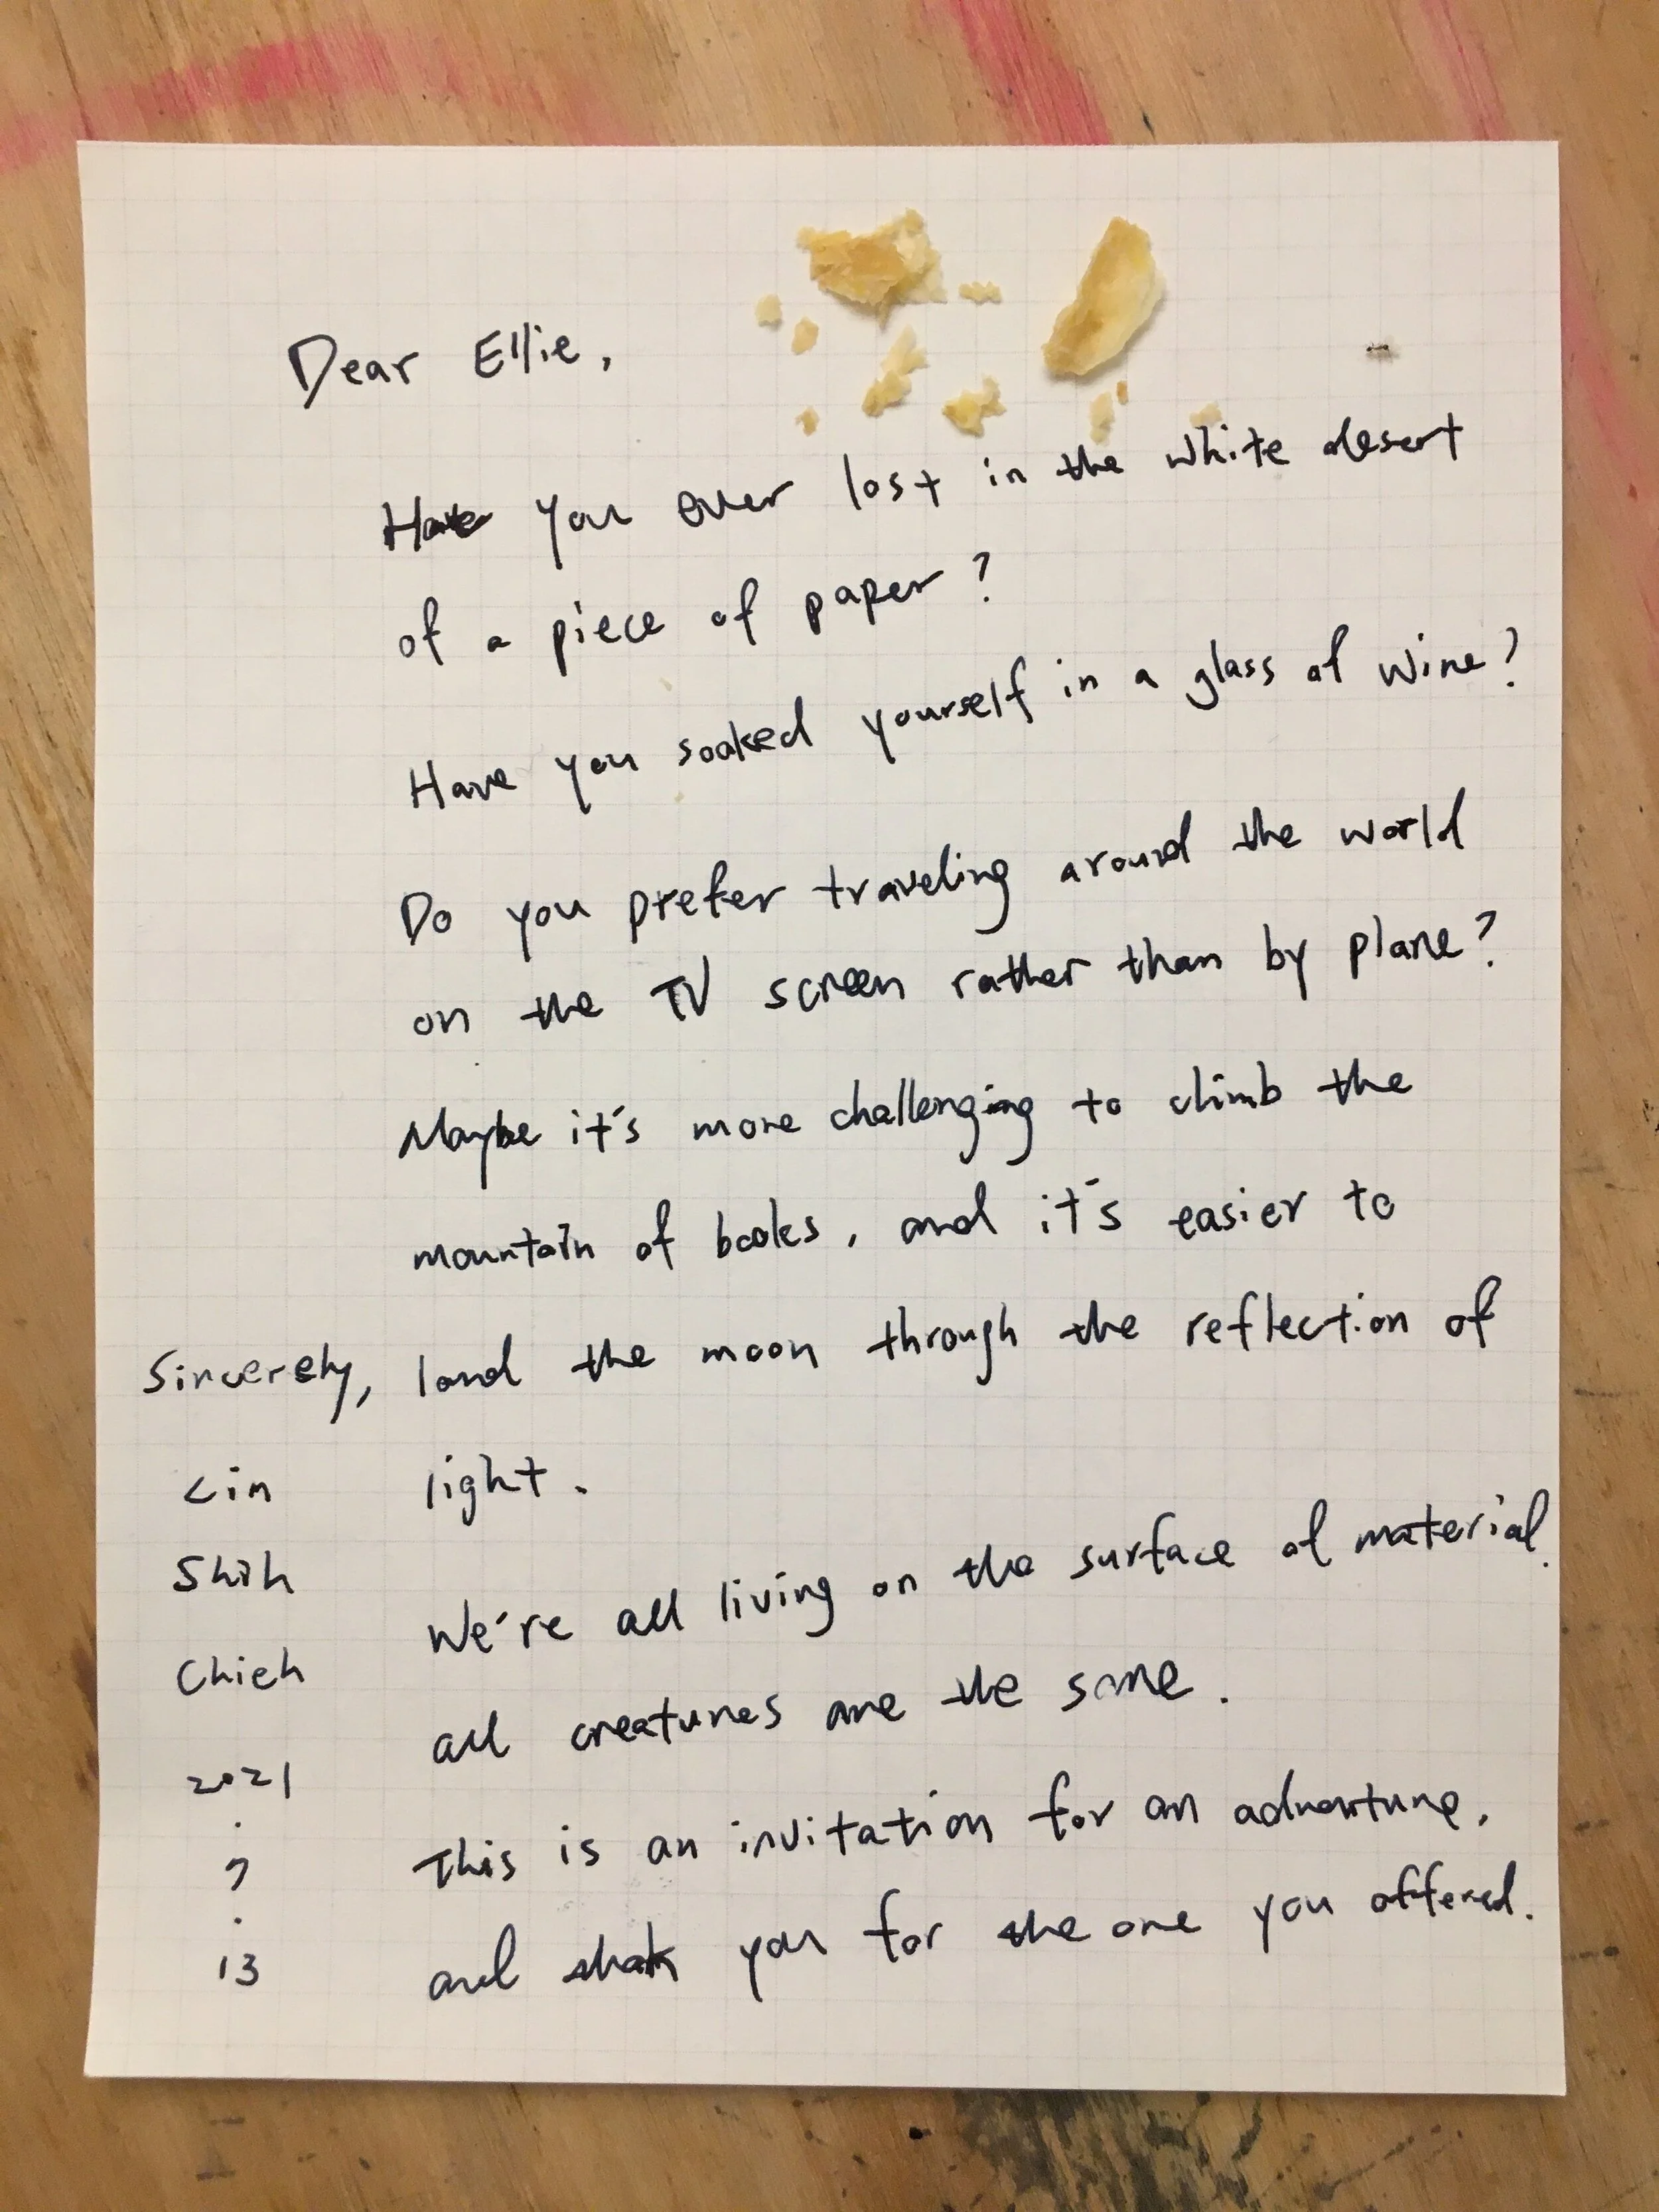 Dear Ellie,
Have you ever lost in the white desert
of a piece of paper?
Have you soaked yourself in a glass of wine?
Do you prefer traveling around the world
on the TV screen rather than by plane?
Maybe it's more challenging to climb the
mountain of books, and it's easier to
land the moon through the reflection of
light.
We're all living on the surface of material.
all creatures are the same.
This is an invitation for an adventure,
and you for the one you offered.
Sincerely,
Lin
Shih
Chieh
2021
.
7
.
13